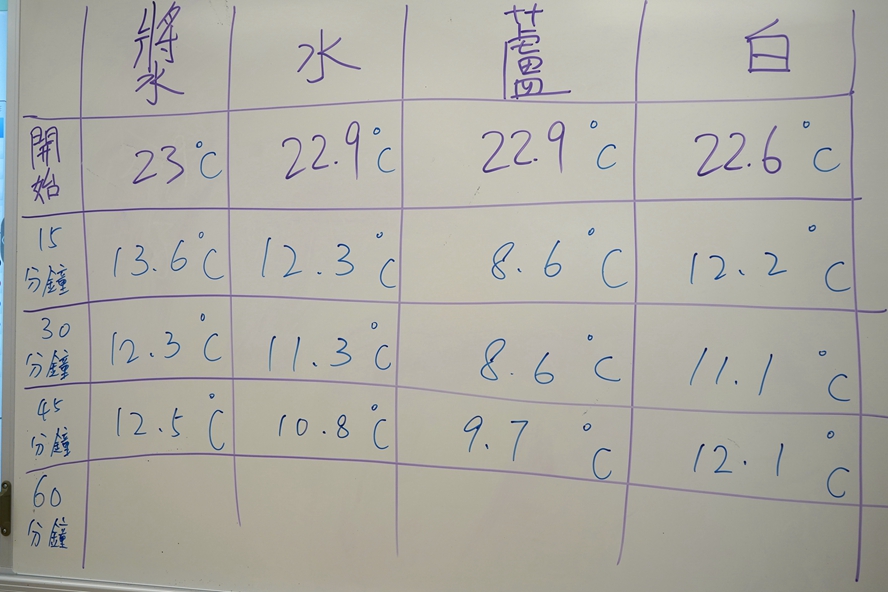 將水 水 蘆 白
開始 23°C 22.9°C 22.9°C 22.6°C
15分鐘 13.6°C 12.3°C 8.6°C 12.2°C
30分鐘 12.3°C 11.3°C 8.6°C 11.1°C
45分鐘 12.5°C 10.8°C 9.7°C 12.1°C
60分鐘